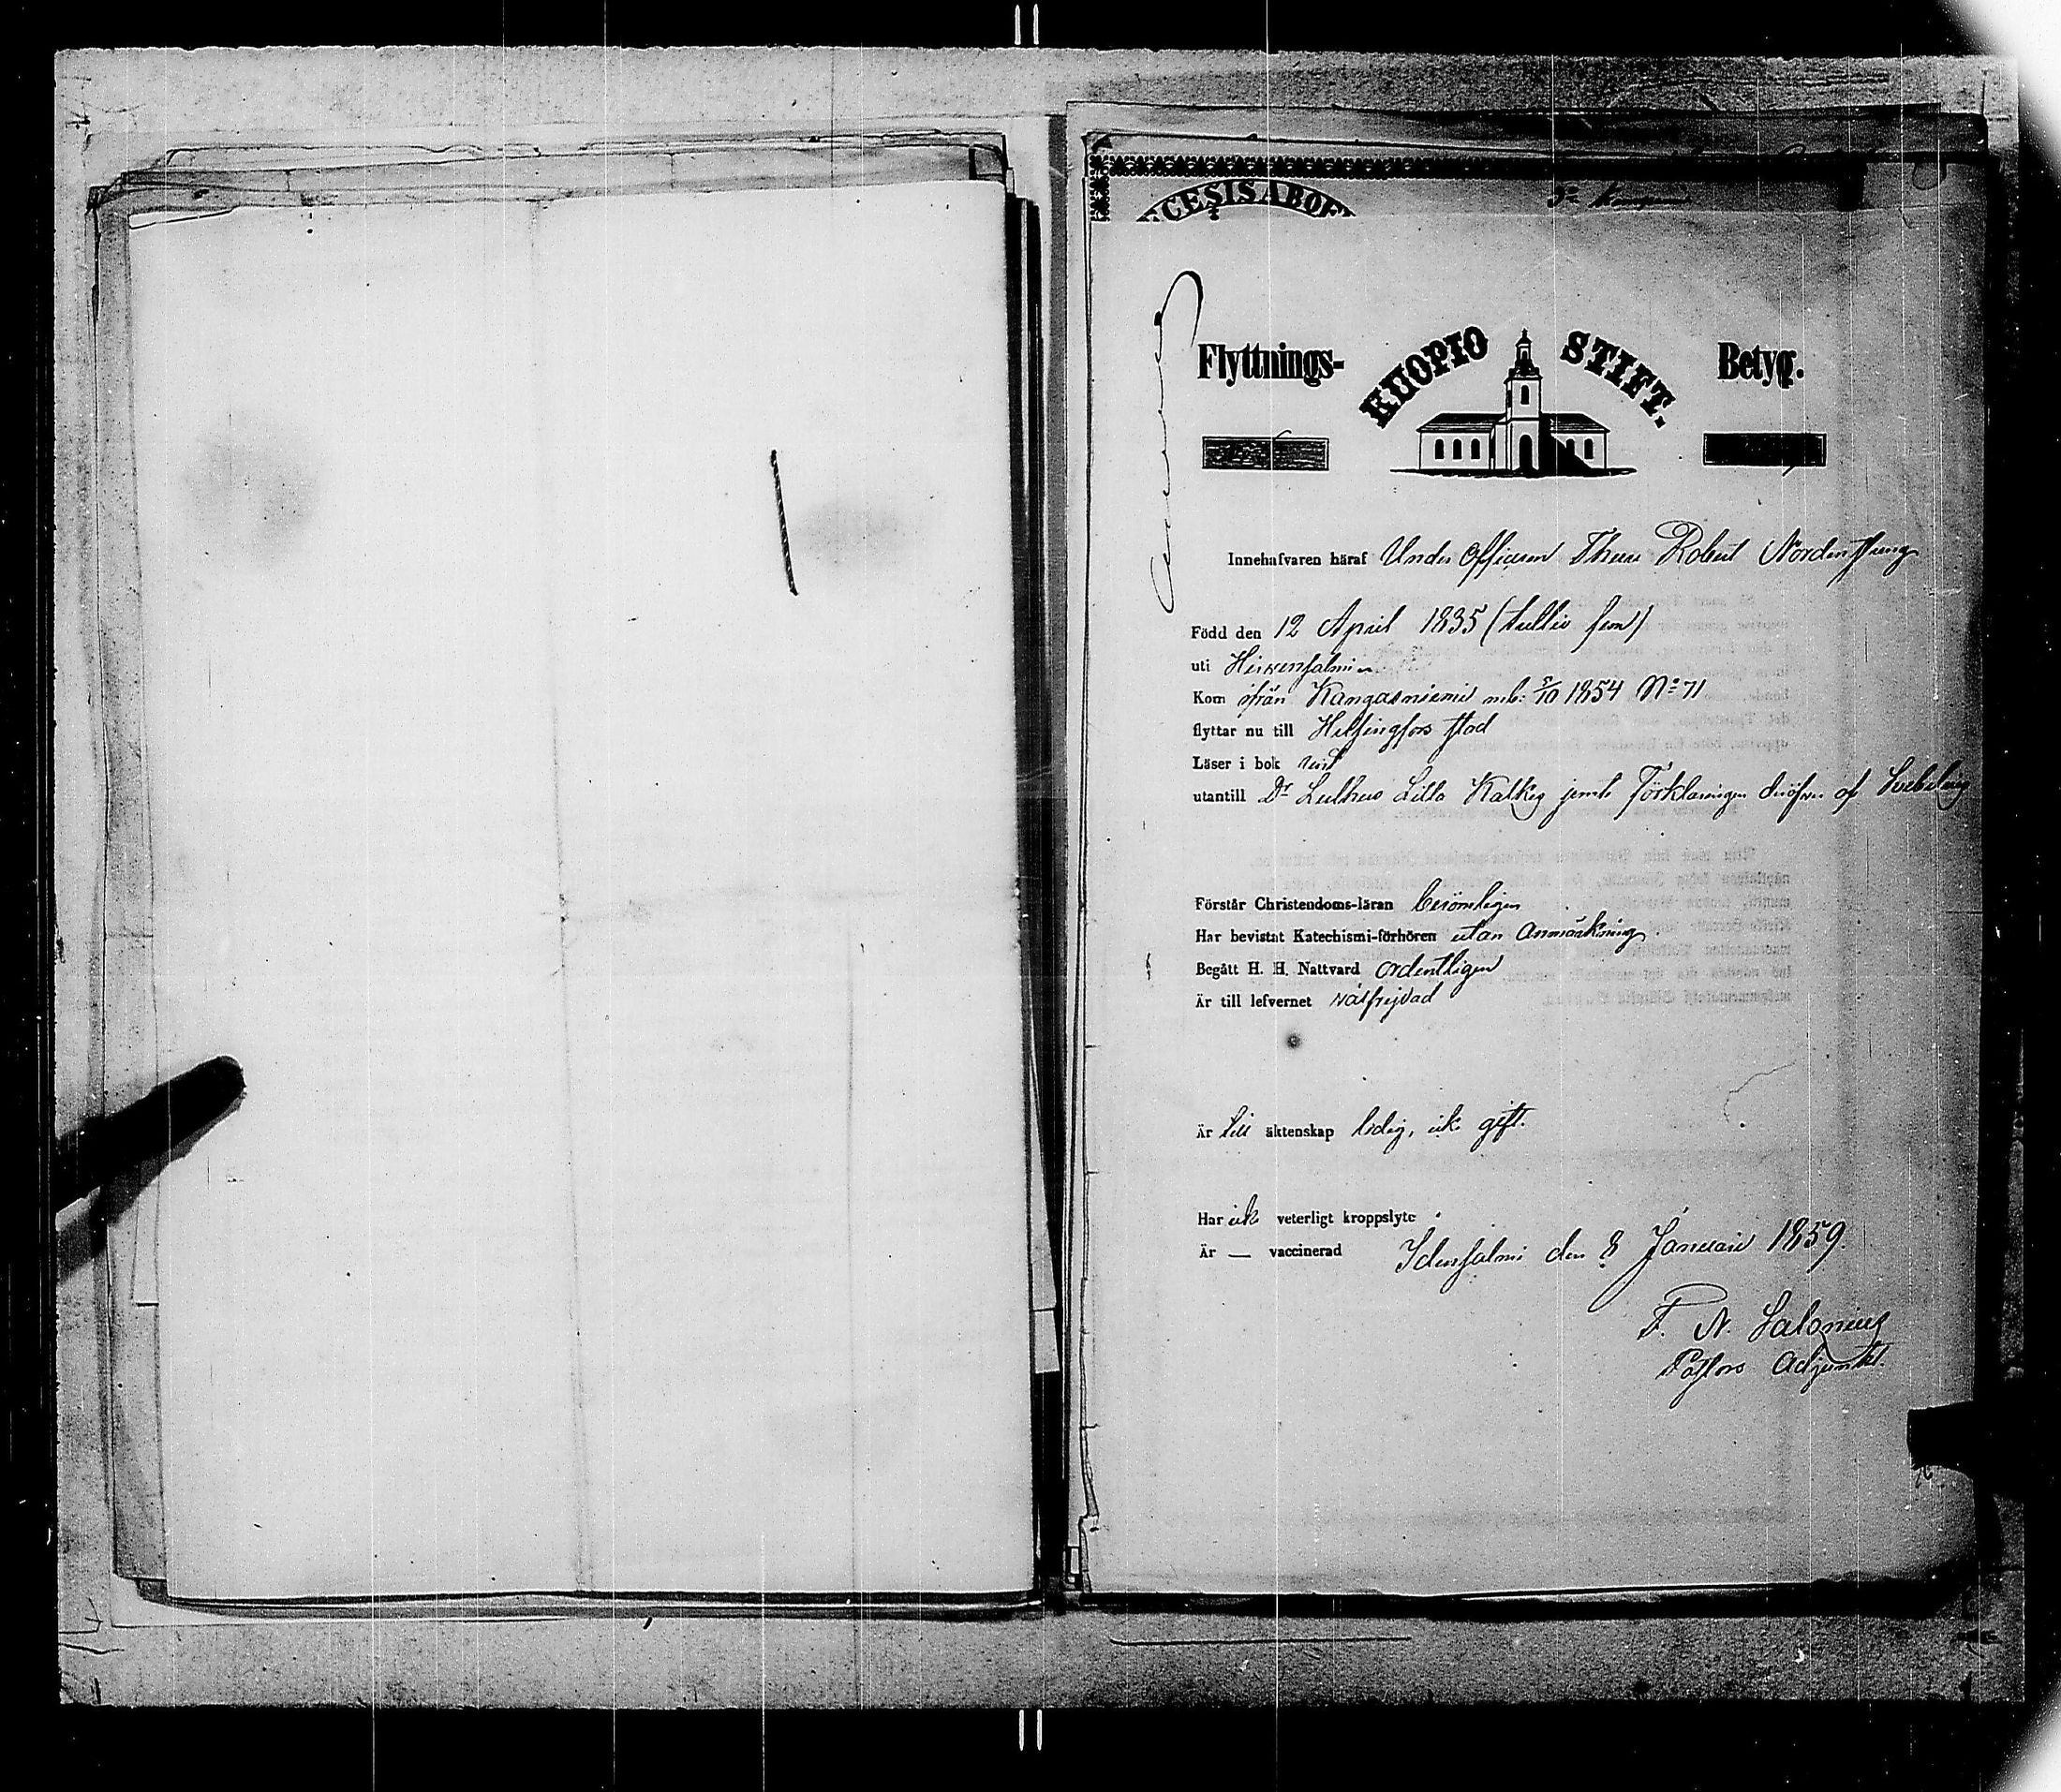 Flyttnings- KUOPIO STIFT. Betyg.
Innehafvaren häraf Under Officeren Robert
Född den 12 April 1835 (trettio fem)
uti Hirvensalmi
Kom ifrån Kangasniemi mb: 5/10 1854 No 71
flyttar nu till Helsingfors stad
Läser i bok rent
utantill Dr Luthers Lilla Katkes jemte Förklaringen deröfver af Svebelius
Förstår Christendoms-läran berömligen
Har bevistat Katechismi-förhören utan Anmärkning
Begått H. H. Nattvard ordentligen
Är till lefvernet välfrejdad
Är till äktenskap ledig, ick gift.
Har ick veterligt kroppslyte.
Är — vaccinerad Idensalmi den 8 Januari 1859.
F. N. Salonius
Pastors Adjunkt.